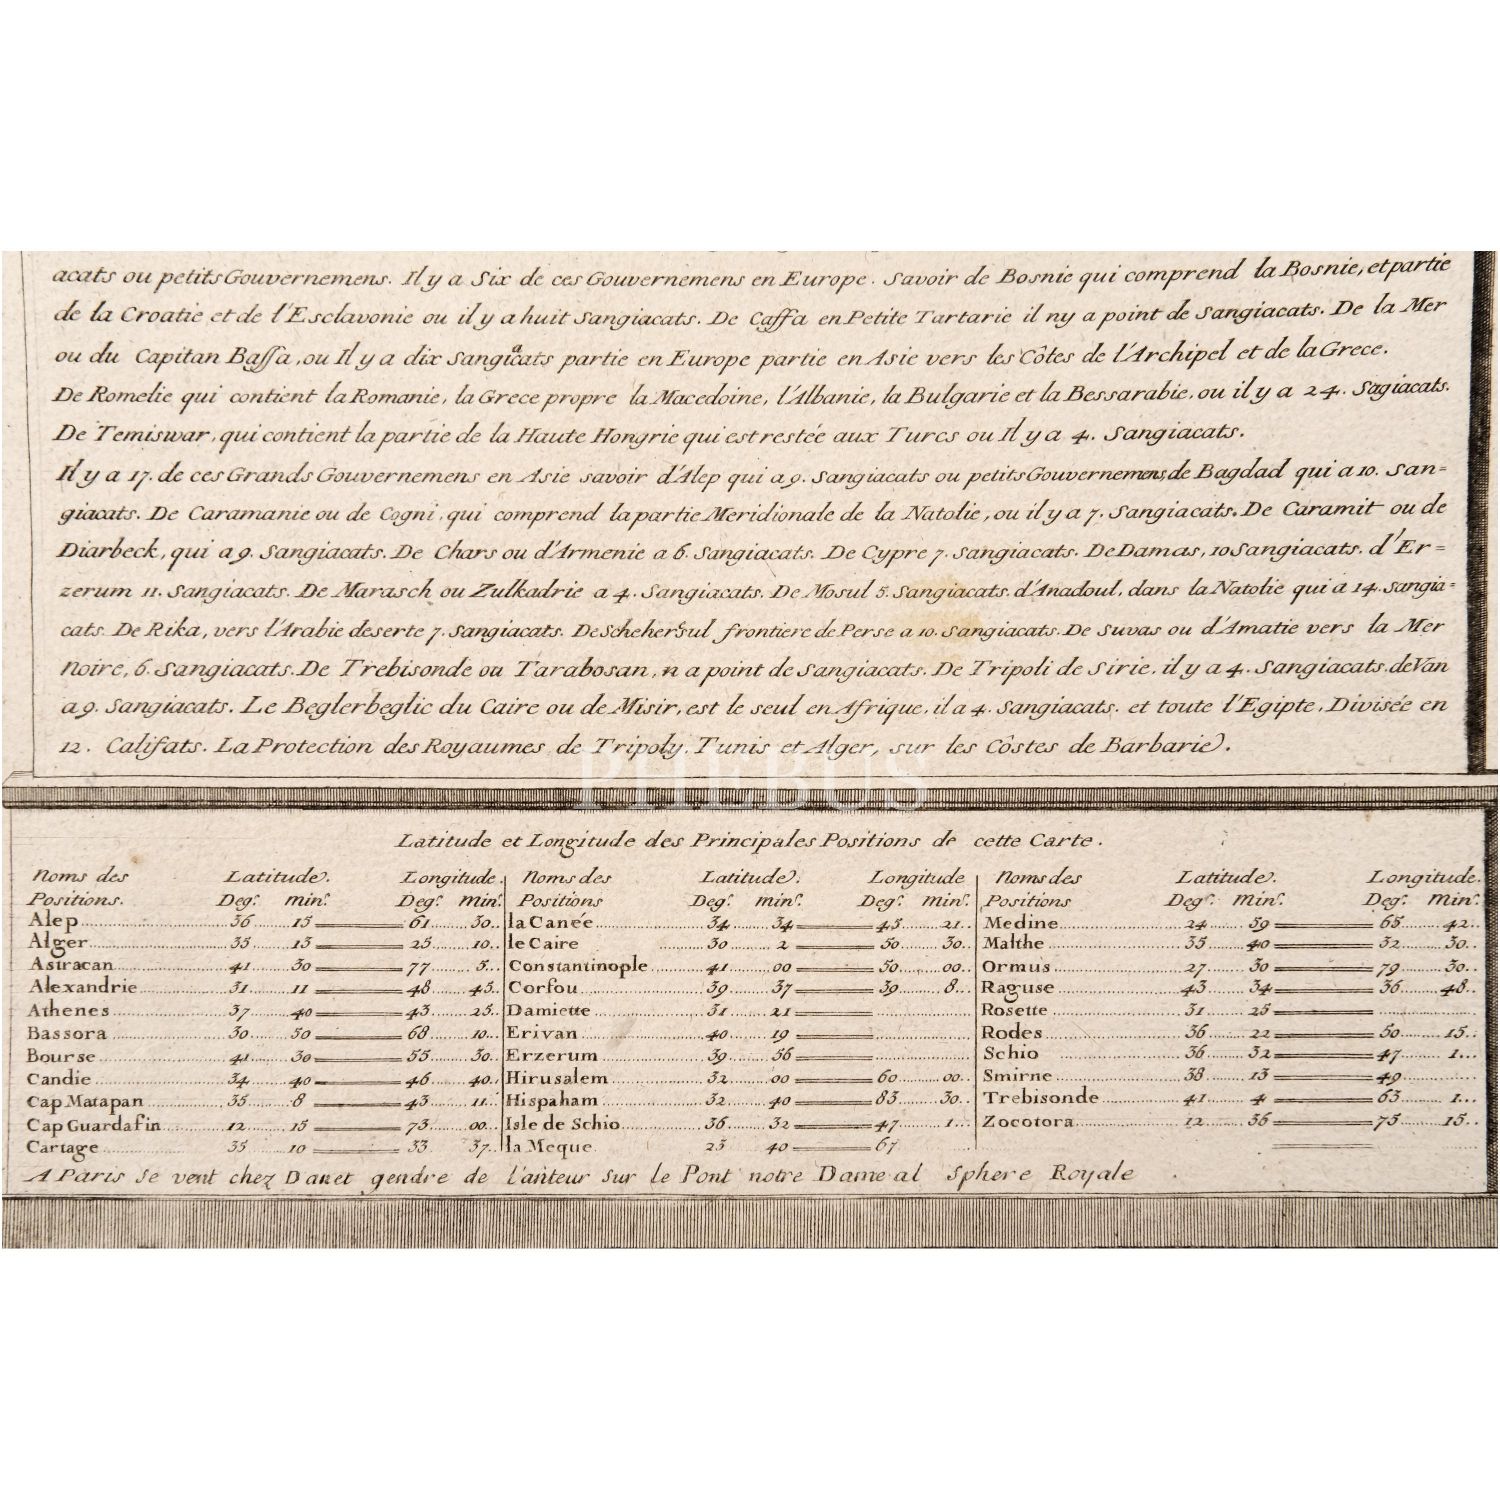 acats ou petits Gouvernemens. Il y a Six de ces Gouvernemens en Europe. Savoir de Bosnie qui comprend la Bosnie, et partie
de la Croatie et de l'Esclavonie ou il y a huit Sangiacats. De Caffa en Petite Tartarie il ny a point de Sangiacats. De la Mer
ou du Capitan Bassa, ou Il y a dix Sangiacats partie en Europe partie en Asie vers les Côtes de l'Archipel et de la Grece.
De Romelie qui contient la Romanie, la Grece propre la Macedoine, l'Albanie, la Bulgarie et la Bessarabie, ou il y a 24. Sagiacats.
De Temiswar, qui contient la partie de la Haute Hongrie qui est restée aux Turcs ou Il y a 4. Sangiacats.
Il y a 17. de ces Grands Gouvernemens en Asie savoir d'Alep qui a 9. Sangiacats ou petits Gouvernemens, de Bagdad qui a 10. San=
giacats. De Caramanie ou de Cogni, qui comprend la partie Meridionale de la Natolie, ou il y a 7. Sangiacats. De Caramit ou de
Diarbeck, qui a 9. Sangiacats. De Chars ou d'Armenie a 6. Sangiacats. De Cypre 7. Sangiacats. De Damas, 10 Sangiacats. d'Er=
zerum 11. Sangiacats. De Marasch ou Zulkadrie a 4. Sangiacats. De Mosul 5. Sangiacats. d'Anadoul, dans la Natolie qui a 14. Sangia=
cats. De Rika, vers l'Arabie deserte 7. Sangiacats. De Scheherzul frontiere de Perse a 10. Sangiacats. De Suvas ou d'Amatie vers la Mer
Noire, 6. Sangiacats. De Trebisonde ou Tarabosan, n a point de Sangiacats. De Tripoli de Sirie, il y a 4. Sangiacats. de Van
a 9. Sangiacats. Le Beglerbeglic du Caire ou de Misir, est le seul en Afrique, il a 4. Sangiacats. et toute l'Egipte, Divisée en
12. Califats. La Protection des Royaumes de Tripoly, Tunis et Alger, sur les Côstes de Barbarie.
PHEBUS
Latitude et Longitude des Principales Positions de cette Carte.
Noms des Latitude. Longitude. Noms des Latitude. Longitude Noms des Latitude. Longitude.
Positions. Deg. min. Deg. min. Positions Deg. min. Deg. min. Positions Deg. min. Deg. min.
Alep 36 15 61 30 la Canée 34 34 45 21 Medine 24 59 65 42
Alger 35 15 25 10 le Caire 30 2 50 30 Malthe 35 40 32 30
Astracan 41 30 77 5 Constantinople 41 00 50 00 Ormus 27 30 79 30
Alexandrie 31 11 48 45 Corfou 39 37 39 8 Raguse 43 34 36 48
Athenes 37 40 43 25 Damiette 31 21 Rosette 31 25
Bassora 30 50 68 10 Erivan 40 19 Rodes 36 22 50 15
Bourse 41 30 55 30 Erzerum 39 56 Schio 36 32 47 1
Candie 34 40 46 40 Hirusalem 32 00 60 00 Smirne 38 13 49
Cap Matapan 35 8 43 11 Hispaham 32 40 83 30 Trebisonde 41 4 63 1
Cap Guardafin 12 15 73 00 Isle de Schio 36 32 47 1 Zocotora 12 36 75 15
Cartage 35 10 33 37 la Meque 23 40 67
A Paris Se vent chez Danet gendre de l'auteur sur le Pont notre Dame al Sphere Royale